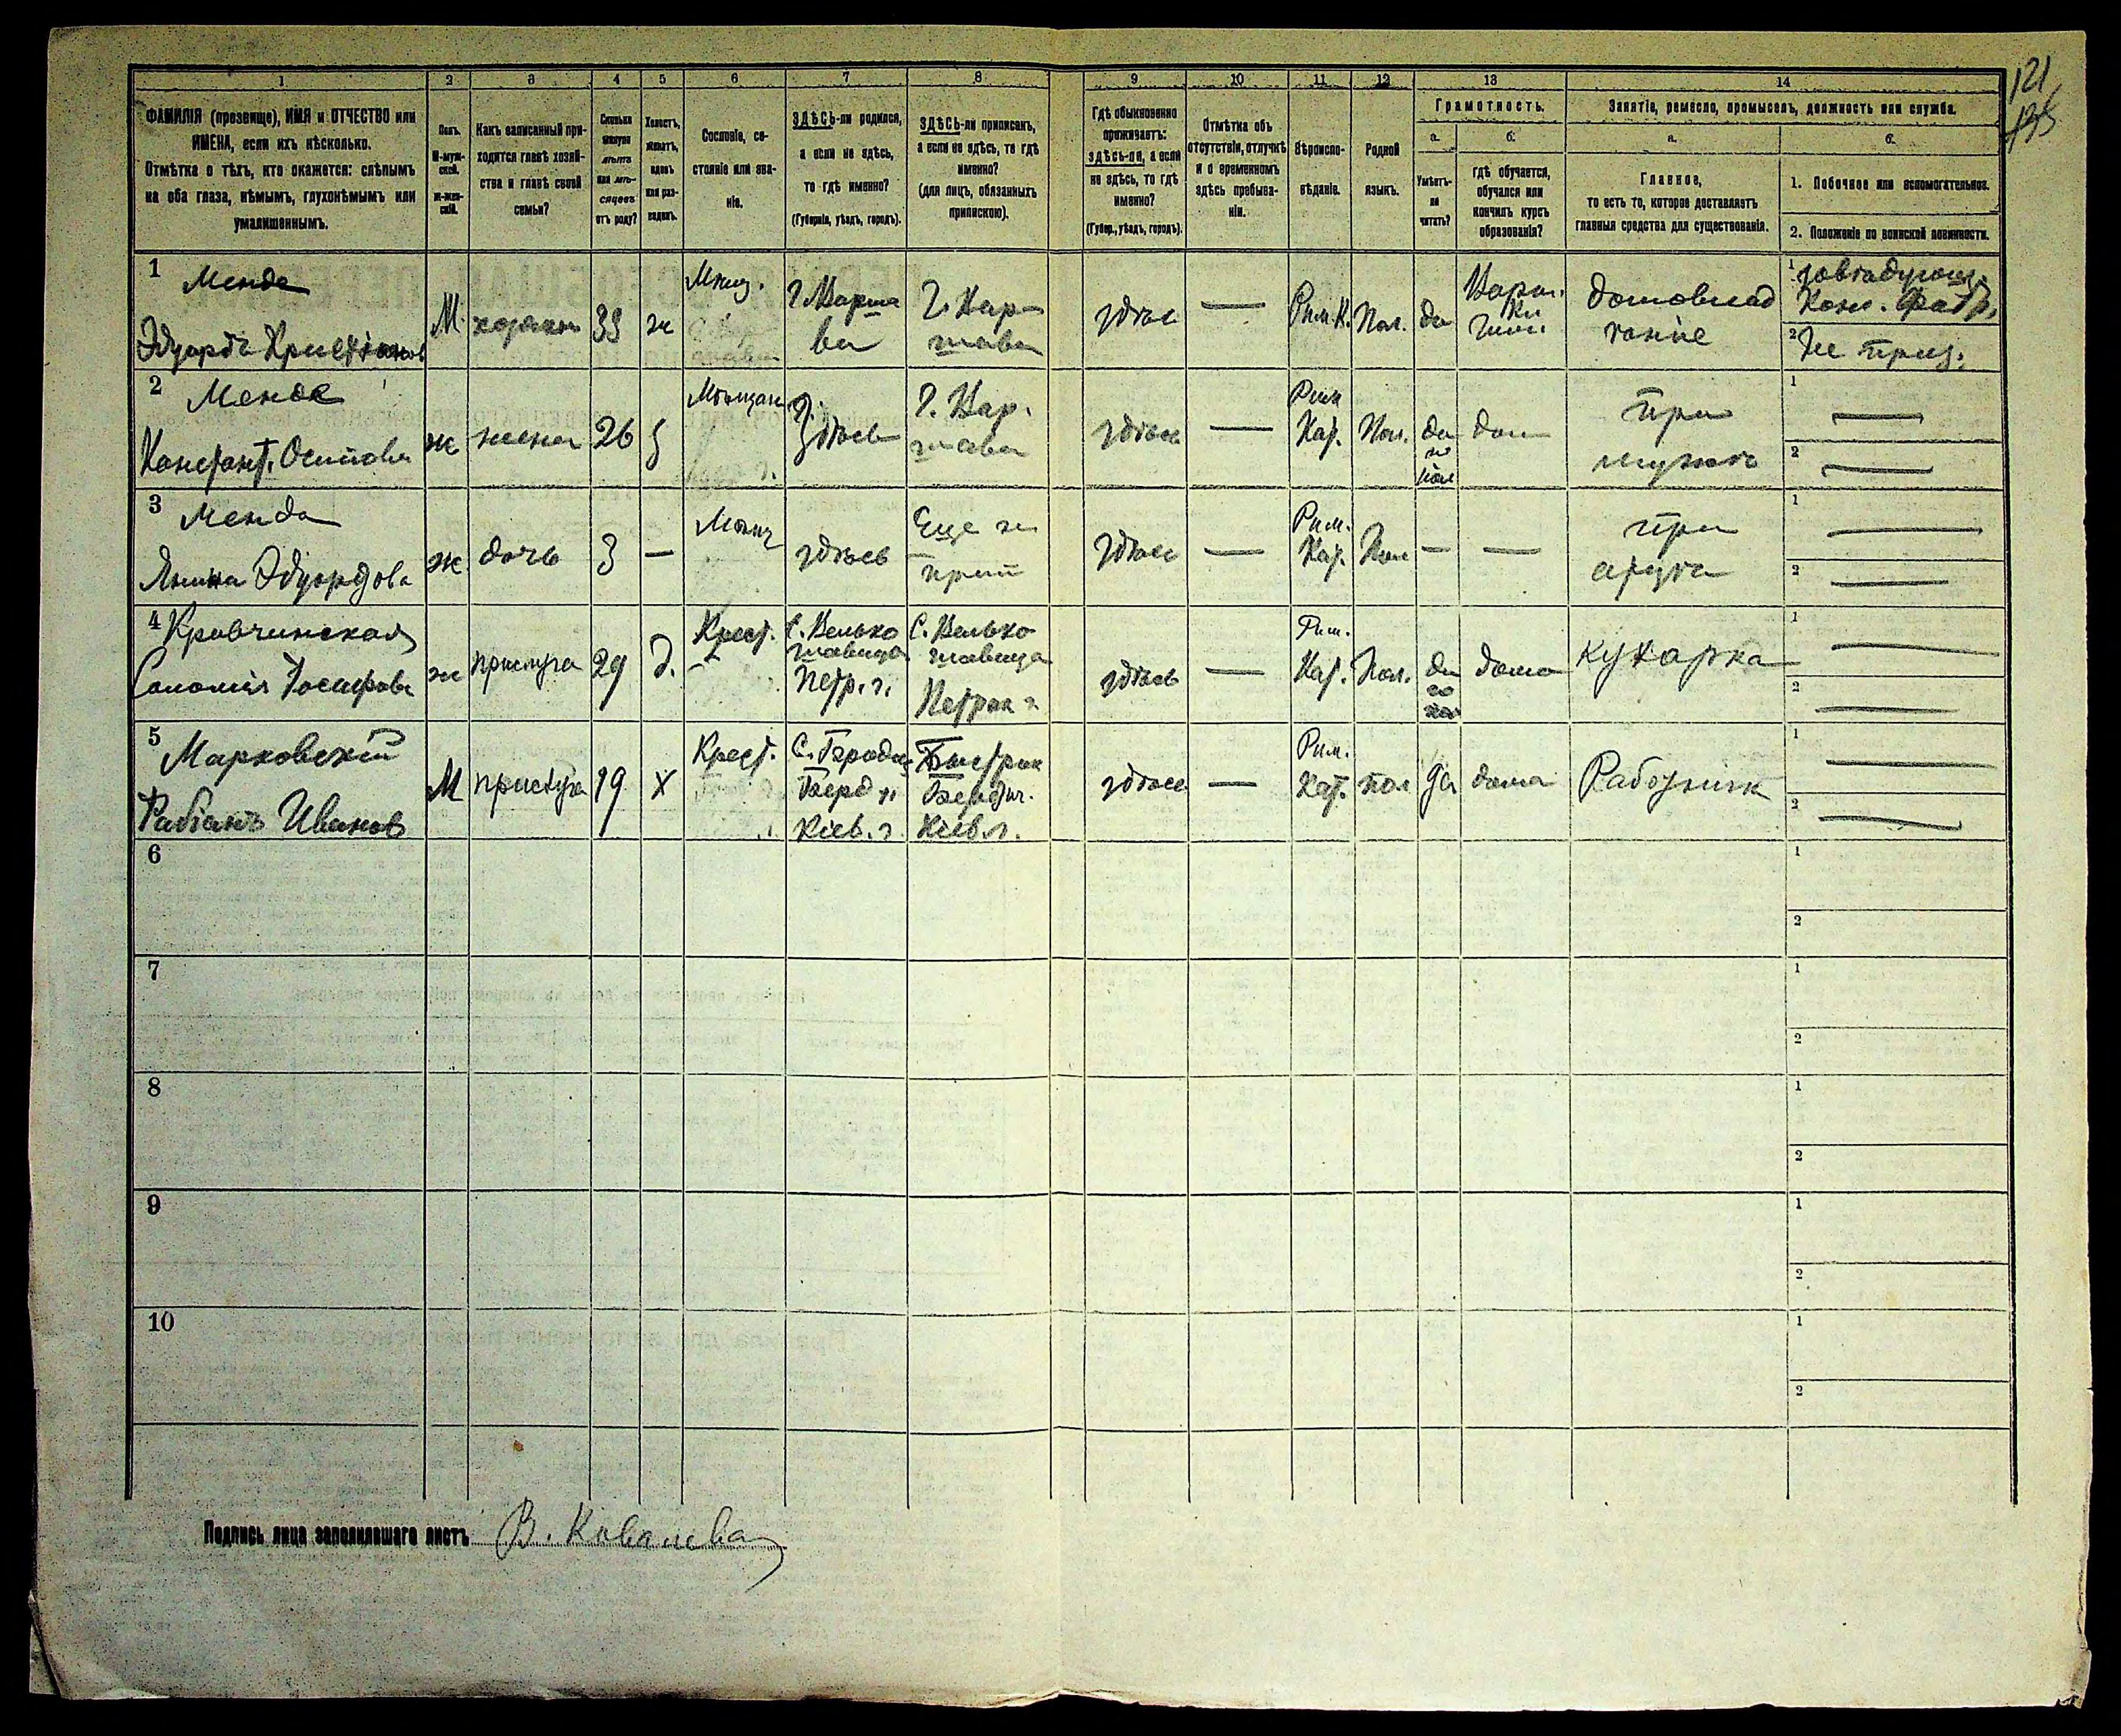 121
135
1 2 3 4 5 6 7 8 9 10 11 12 13 14
ФАМИЛІЯ (прозвище), ИМЯ и ОТЧЕСТВО или
ИМЕНА, если ихъ нѣсколько.
Отмѣтка о тѣхъ, кто окажется: слѣпымъ
на оба глаза, нѣмымъ, глухонѣмымъ или
умалишеннымъ.
Полъ.
М-муж-
ской.
ж-жен-
скій.
Какъ записанный при-
ходится главѣ хозяй-
ства и главѣ своей
семьи?
Сколько
минуло
лѣтъ
или мѣ-
сяцевъ
отъ роду?
Холостъ,
женатъ,
вдовъ
или раз-
веденъ.
Сословіе, со-
стояніе или зва-
ніе.
ЗДѢСЬ-ли родился,
а если не здѣсь,
то гдѣ именно?
(Губернія, уѣздъ, городъ).
ЗДѢСЬ-ли приписанъ,
а если не здѣсь, то гдѣ
именно?
(для лицъ, обязанныхъ
припискою).
Гдѣ обыкновенно
проживаетъ:
ЗДѢСЬ-ли, а если
не здѣсь, то гдѣ
именно?
(Губер., уѣздъ, городъ).
Отмѣтка объ
отсутствіи, отлучкѣ
и о временномъ
здѣсь пребыва-
ніи.
Вѣроиспо-
вѣданіе.
Родной
языкъ.
Грамотность.
а.
Умѣетъ-
ли
читать?
б.
гдѣ обучается,
обучался или
кончилъ курсъ
образованія?
Занятіе, ремесло, промыселъ, должность или служба.
а.
Главное,
то есть то, которое доставляетъ
главныя средства для существованія.
б.
1. Побочное или вспомогательное.
2. Положеніе по воинской повинности.
1 Менда
Эдуардъ Христіановъ
М. хозяинъ ж
Мѣщ.
г. Варша
ва
г. Вар
шава
здѣсь — Рим.К. Пол. да
гим.
домовлад
1
Кон. фабр.
2
2 Менда
Констант. Осипова
ж жена 26 з
Мѣщан
здѣсь
г. Вар.
шава
здѣсь —
Рим
Кат. Пол. да
по
пол
дом
при
мужѣ
1 —
2 —
3 Менда
Янина Эдуардова
ж. дочь 3 —
Мѣщ
здѣсь
Еще не
прип
здѣсь —
Рим.
Кат. Пол — —
при
отцѣ
1 —
2 —
4 Кровчинская
Саломія Іосифова
ж прислуга 29 д.
Крест.
С. Велько
шавица
Петр. г.
С. Велько
шавица
Петрок г
здѣсь —
Рим.
Кат. Пол. да
по
пол
дома
кухарка
1 —
2 —
5 Марковскій
Фабіанъ Иванов
М прислуга 19 х
Крест.
Берд у
Кіев. г.
Быстрик
Бердич.
Кіев. г.
здѣсь —
Рим.
Кат. пол да дома
Работник
1 —
2 —
6 1
2
7 1
2
8 1
2
9 1
2
10 1
2
Подпись лица заполнившаго листъ В. Ковалева